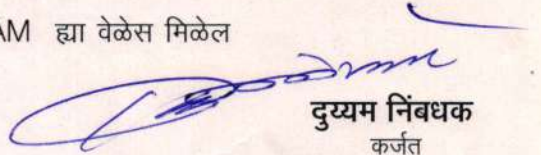 AM ह्या वेळेस मिळेल
दुय्यम निंबधक
कर्जत